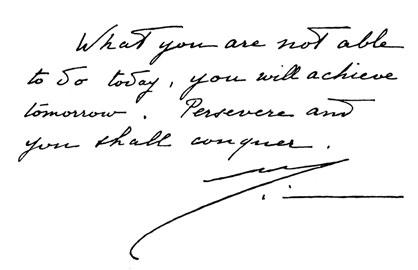 What you are not able
to do today, you will achieve
tomorrow. Persevere and
you shall conquer.